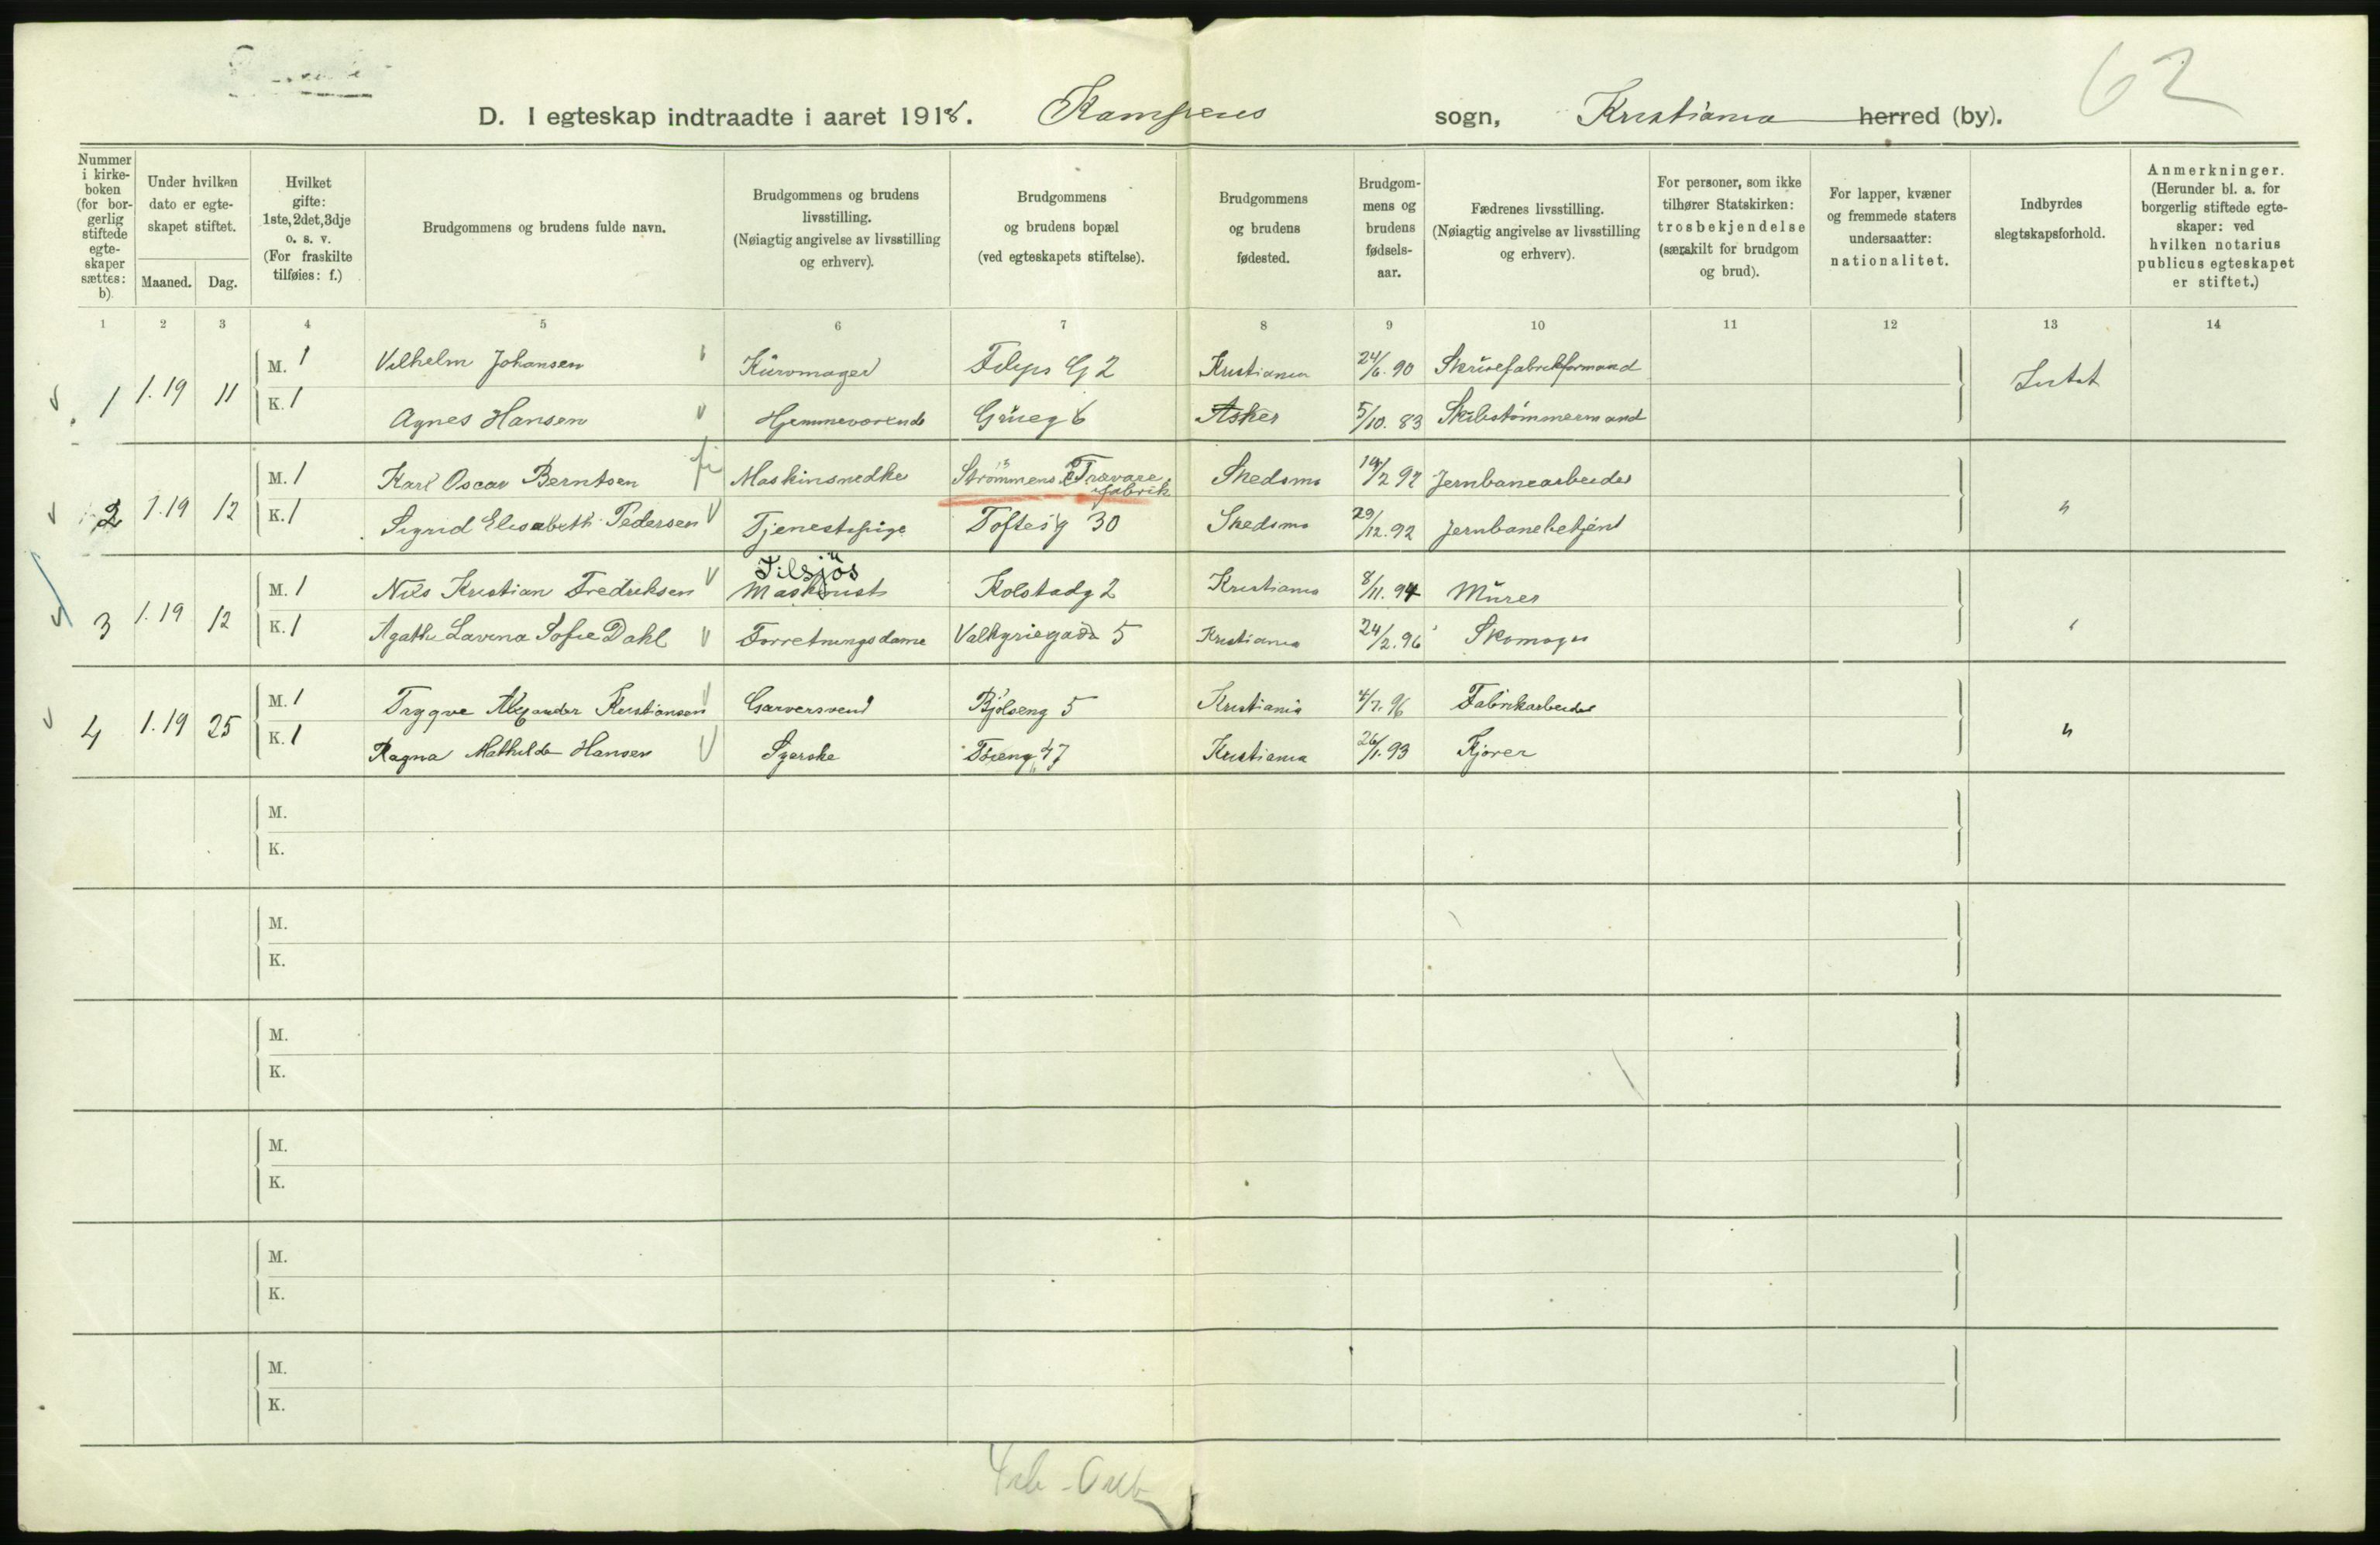 62
D. I egteskap indtraadte i aaret 1918. Kampens sogn, Kristiania herred (by).
Nummer i kirkeboken (for borgerlig stiftede egteskaper sættes: b).
Under hvilken dato er egteskapet stiftet.
Maaned. Dag.
Hvilket gifte: 1ste, 2det, 3dje o. s. v. (For fraskilte tilføies: f.)
Brudgommens og brudens fulde navn.
Brudgommens og brudens livsstilling. (Nøiagtig angivelse av livsstilling og erhverv).
Brudgommens og brudens bopæl (ved egteskapets stiftelse).
Brudgommens og brudens fødested.
Brudgommens og brudens fødselsaar.
Fædrenes livsstilling. (Nøiagtig angivelse av livsstilling og erhverv).
For personer, som ikke tilhører Statskirken: trosbekjendelse (særskilt for brudgom og brud).
For lapper, kvæner og fremmede staters undersaatter: nationalitet.
Indbyrdes slegtskapsforhold.
Anmerkninger. (Herunder bl. a. for borgerlig stiftede egteskaper: ved hvilken notarius publicus egteskapet er stiftet.)
1 2 3 4 5 6 7 8 9 10 11 12 13 14
1 1.19 11 M. 1 Vilhelm Johansen Kurvmager Filips G 2 Kristiania 24/6. 90 Skruefabrikformand Intet
K. 1 Agnes Hansen Hjemmeværende Grüeg 6 Asker 5/10. 83 Skibstømmermand
2 1.19 12 M. 1 Karl Oscar Berntsen Maskinsnedker Strømmens Trævare fabrik Skedsmo 19/2 92 Jernbanearbeider "
K. 1 Sigrid Elisabeth Pedersen Tjenestepige Toftesg 30 Skedsmo 29/12. 92 Jernbanebetjent
3 1.19 12 M. 1 Nils Kristian Fredriksen Tilsjös Maskinist Kolstadg 2 Kristiania 8/11. 94 Murer "
K. 1 Agathe Lavina Sofie Dahl Forretningsdame Valkyriegada 5 Kristiania 24/2. 96 Skomager
4 1.19 25 M. 1 Trygve Alexander Kristiansen Garversvend Bjølseng 5 Kristiania 4/7. 96 Fabrikarbeider "
K. 1 Ragna Mathilde Hansen Syerske Tøieng 47 Kristiania 26/1. 93 Kjører
M.
K.
M.
K.
M.
K.
M.
K.
M.
K.
M.
K.